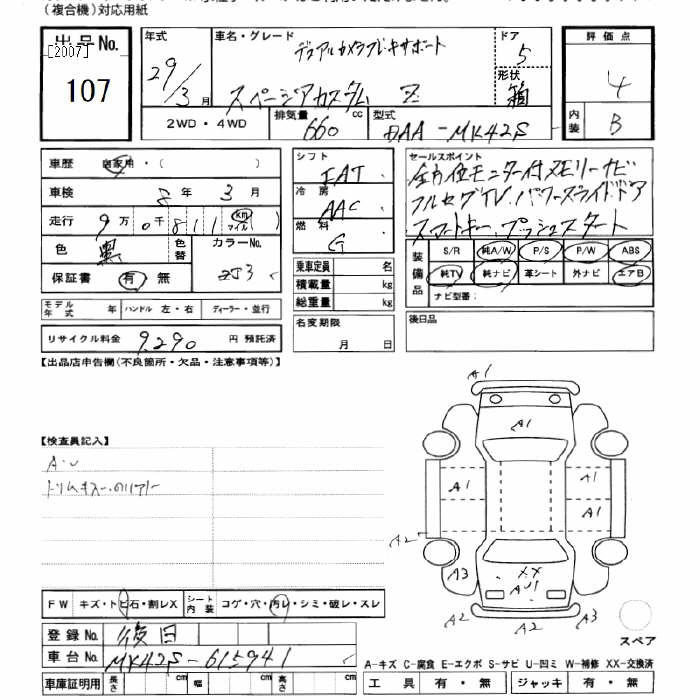 (複合機)対応用紙
出品No. [2007] 107
年式 29/3月
車名・グレード デュアルカメラブレーキサポート
スペーシアカスタム Z
ドア 5
形状 箱
評価点 4
内装 B
2WD・4WD
排気量 660 cc
型式 DAA-MK42S
車歴 自家用・( )
車検 8年 3月
走行 9万0千811 km マイル
色 黒
色替
カラーNo. ZJ3
保証書 有・無
モデル年式 年
ハンドル 左・右
ディーラー・並行
リサイクル料金 9,290 円 預託済
シフト IAT
冷房 AAC
燃料 G
乗車定員 名
積載量 kg
総重量 kg
名変期限 月 日
セールスポイント
全方位モニター付メモリーナビ
フルセグTV パワースライドドア
スマートキー、プッシュスタート
装備品
S/R 純A/W P/S P/W ABS
純TV 純ナビ 革シート 外ナビ エアB
ナビ型番:
後日品
【出品店申告欄(不良箇所・欠品・注意事項等)】
【検査員記入】
A・U
トリムキズ
FW キズ・トビ石・割レX
シート内装 コゲ・穴・汚レ・シミ・破レ・スレ
登録No. 後日
車台No. MK42S-615941
車庫証明用 長さ cm 幅 cm 高さ cm
A1
A1
A1
A1
A1
A2
A2
XX
AU1
A3
A3
A2
A2
A3
スペア
A-キズ C-腐食 E-エクボ S-サビ U-凹ミ W-補修 XX-交換済
工具 有・無 ジャッキ 有・無